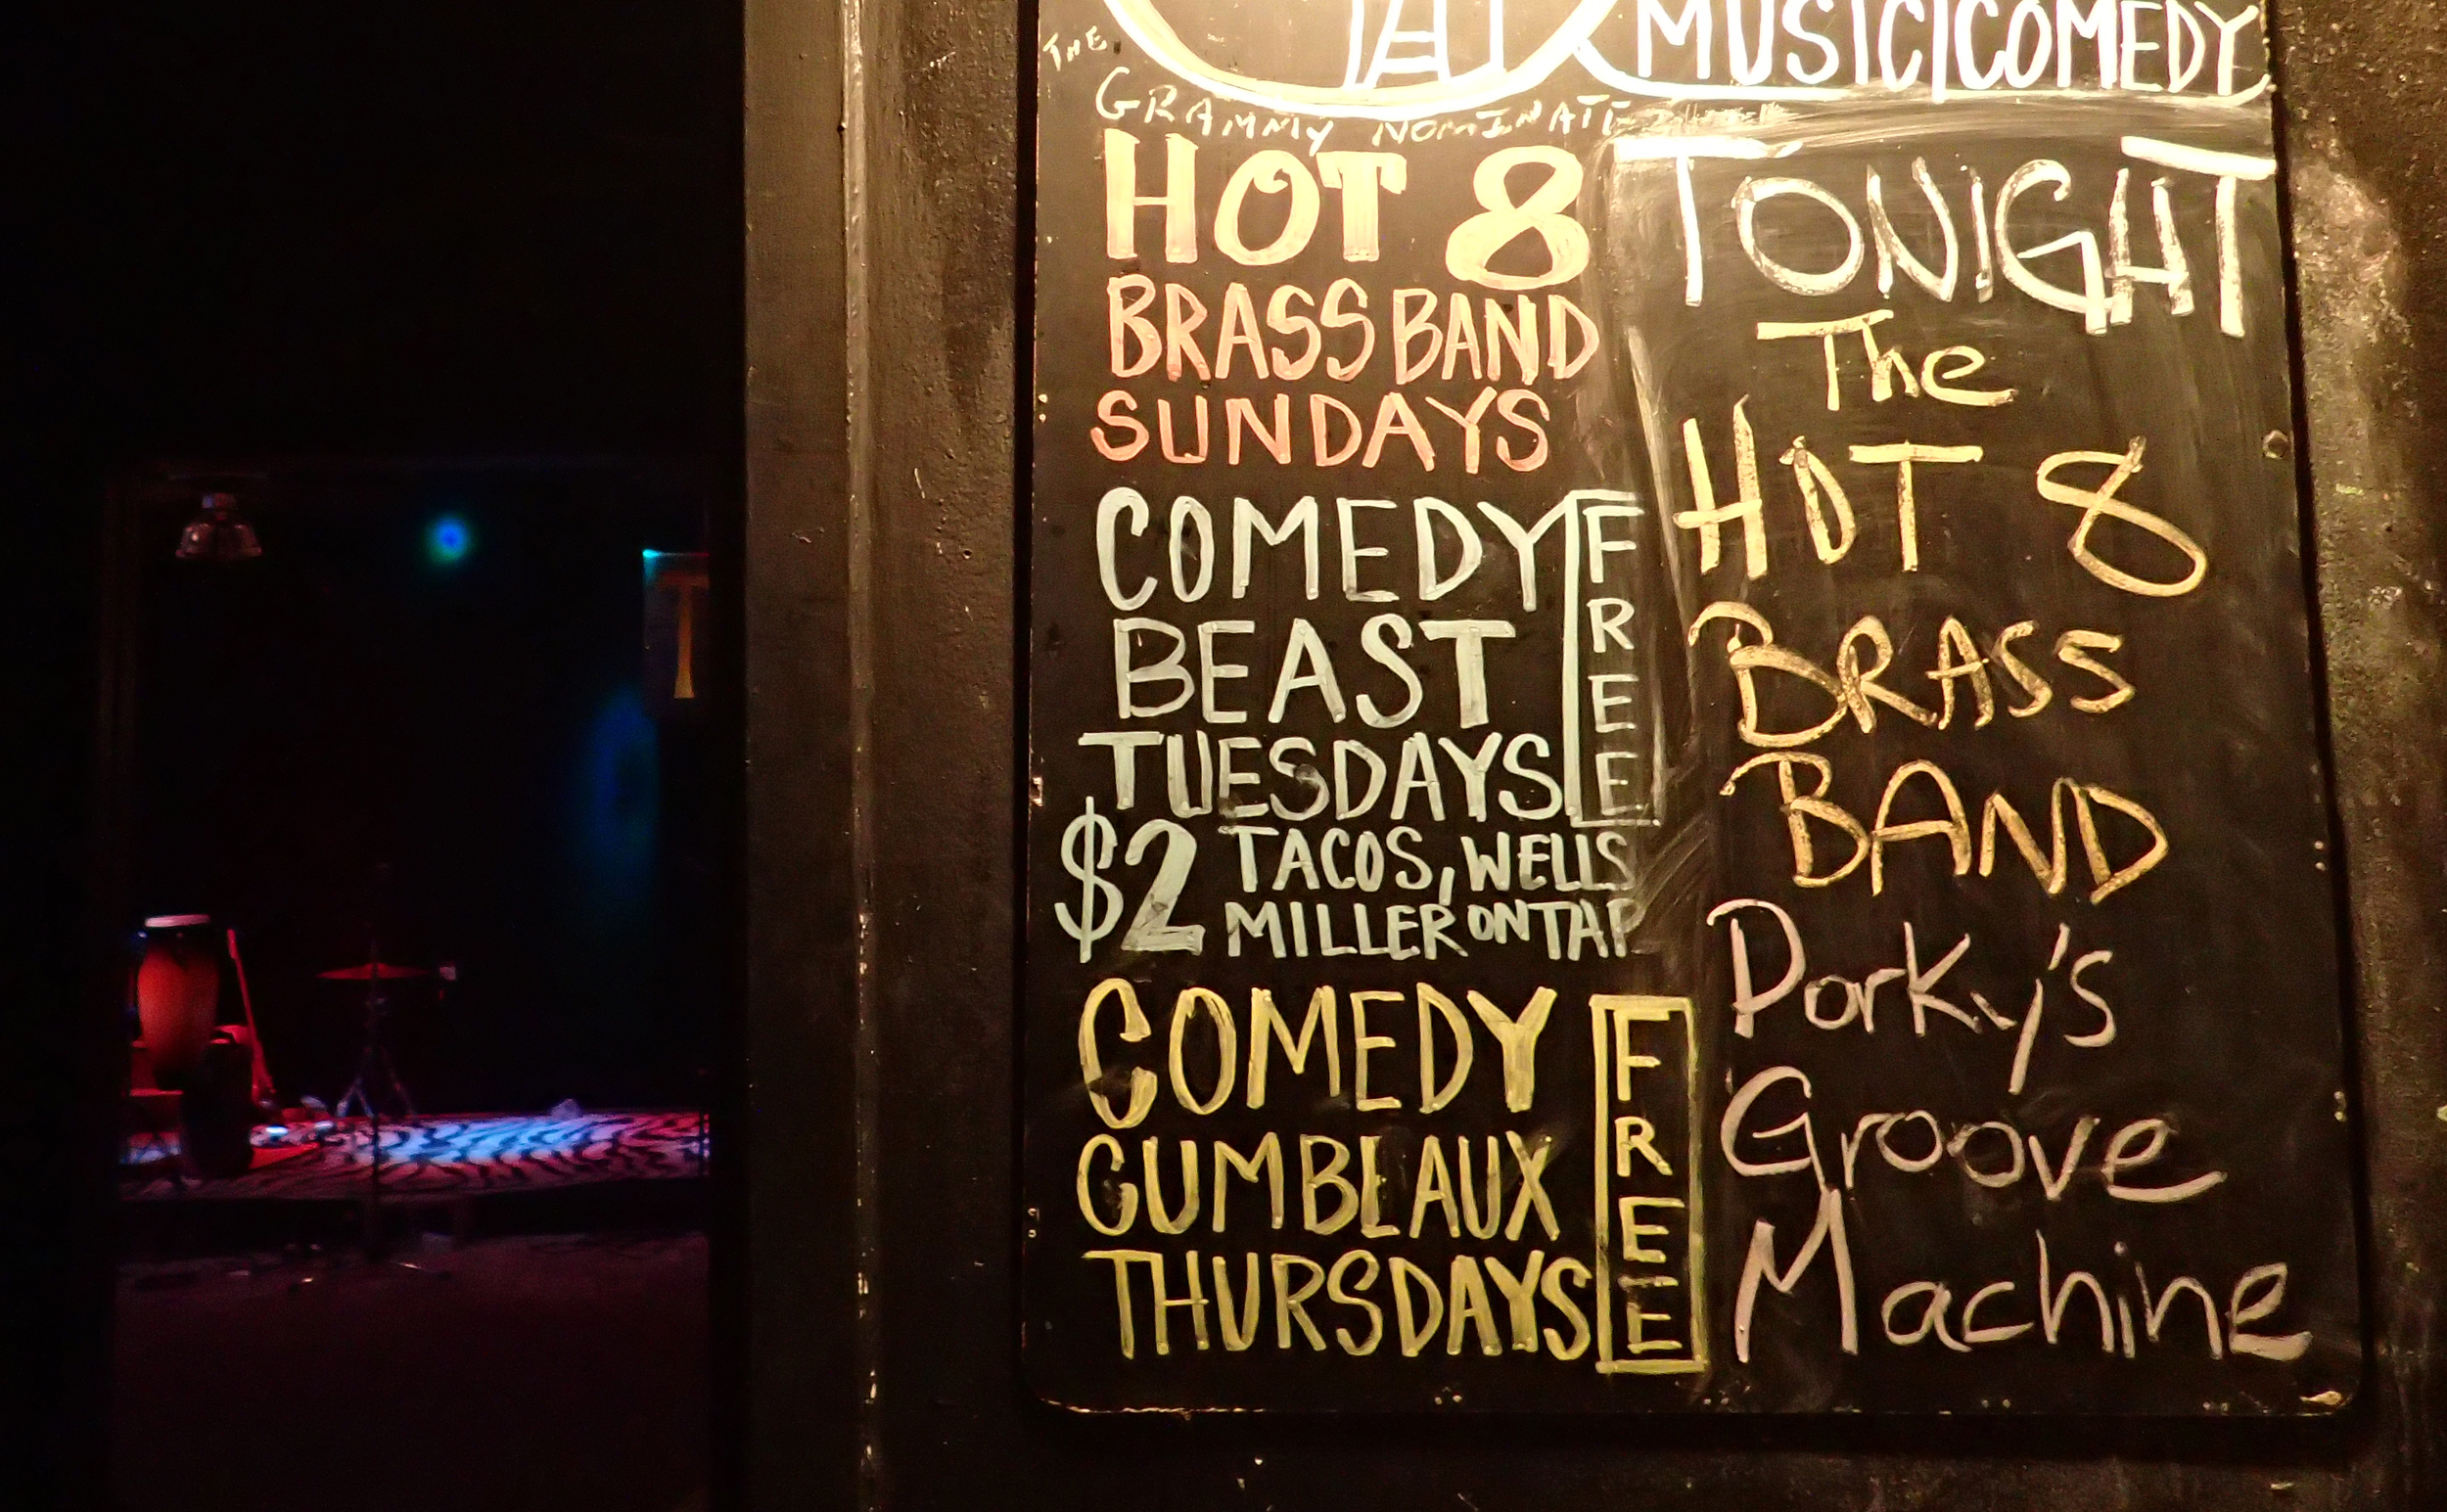 MUSIC|COMEDY
THE
GRAMMY NOMINATE
HOT 8
BRASS BAND
SUNDAYS
COMEDY
BEAST
TUESDAYS
FREE
$2 TACOS, WELLS
MILLER ON TAP
COMEDY
GUMBEAUX
THURSDAYS
FREE
TONIGHT
The
HOT 8
BRASS
BAND
Porky's
Groove
Machine
T